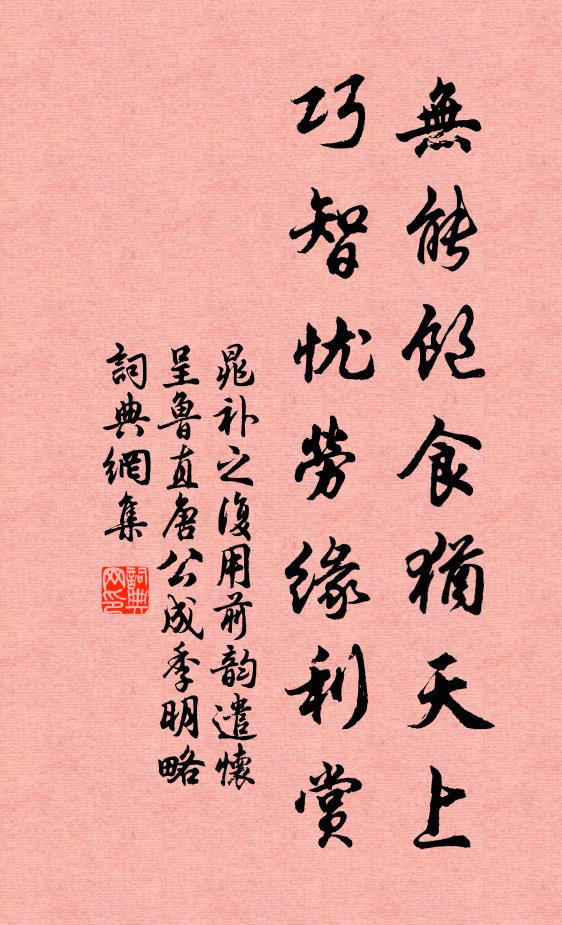 無能飽食猶天上
巧智忧勞緣利賞
晁补之復用前韵遣懷
呈魯直唐公成季明略
詞典網集
詞典
网印